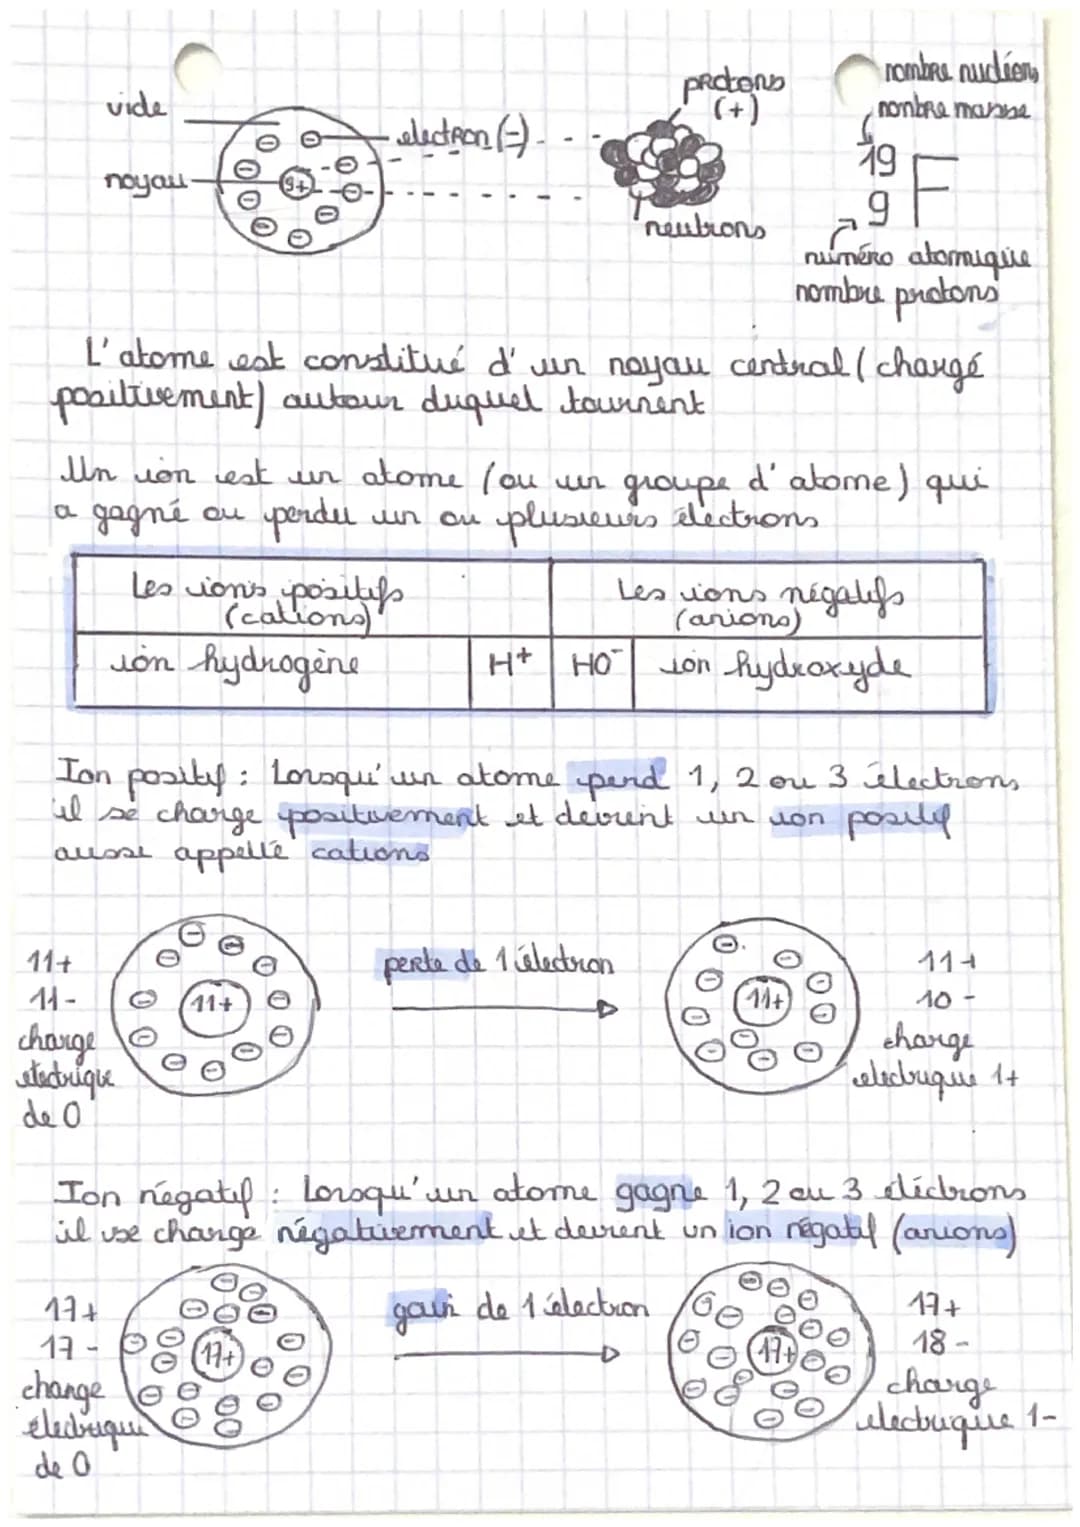 vide
noyau
electron (-)
9+
protons
(+)
neutrons
nombre nucléons
nombre masse
19
9
F
numéro atomique
nombre protons
L'atome est constitué d'un noyau central (chargé
positivement) autour duquel tournent
Un ion est un atome (ou un groupe d'atome) qui
a gagné ou perdu un ou plusieurs électrons
Les ions positifs
(cations)
Les ions négatifs
(anions)
ion hydrogène
H+
HO-
ion hydroxyde
Ion positif : Lorsqu'un atome perd 1, 2 ou 3 électrons,
il se charge positivement et devient un ion positif
aussi appellé cations
11+
11-
charge
électrique
de 0
11+
perte de 1 électron
11+
11+
10 -
charge
electrique 1+
Ion négatif : Lorsqu'un atome gagne 1, 2 ou 3 électrons
il se charge négativement et devient un ion négatif (anions)
17+
17 -
charge
électrique
de 0
17+
gain de 1 électron
17+
17+
18 -
charge
electrique 1-